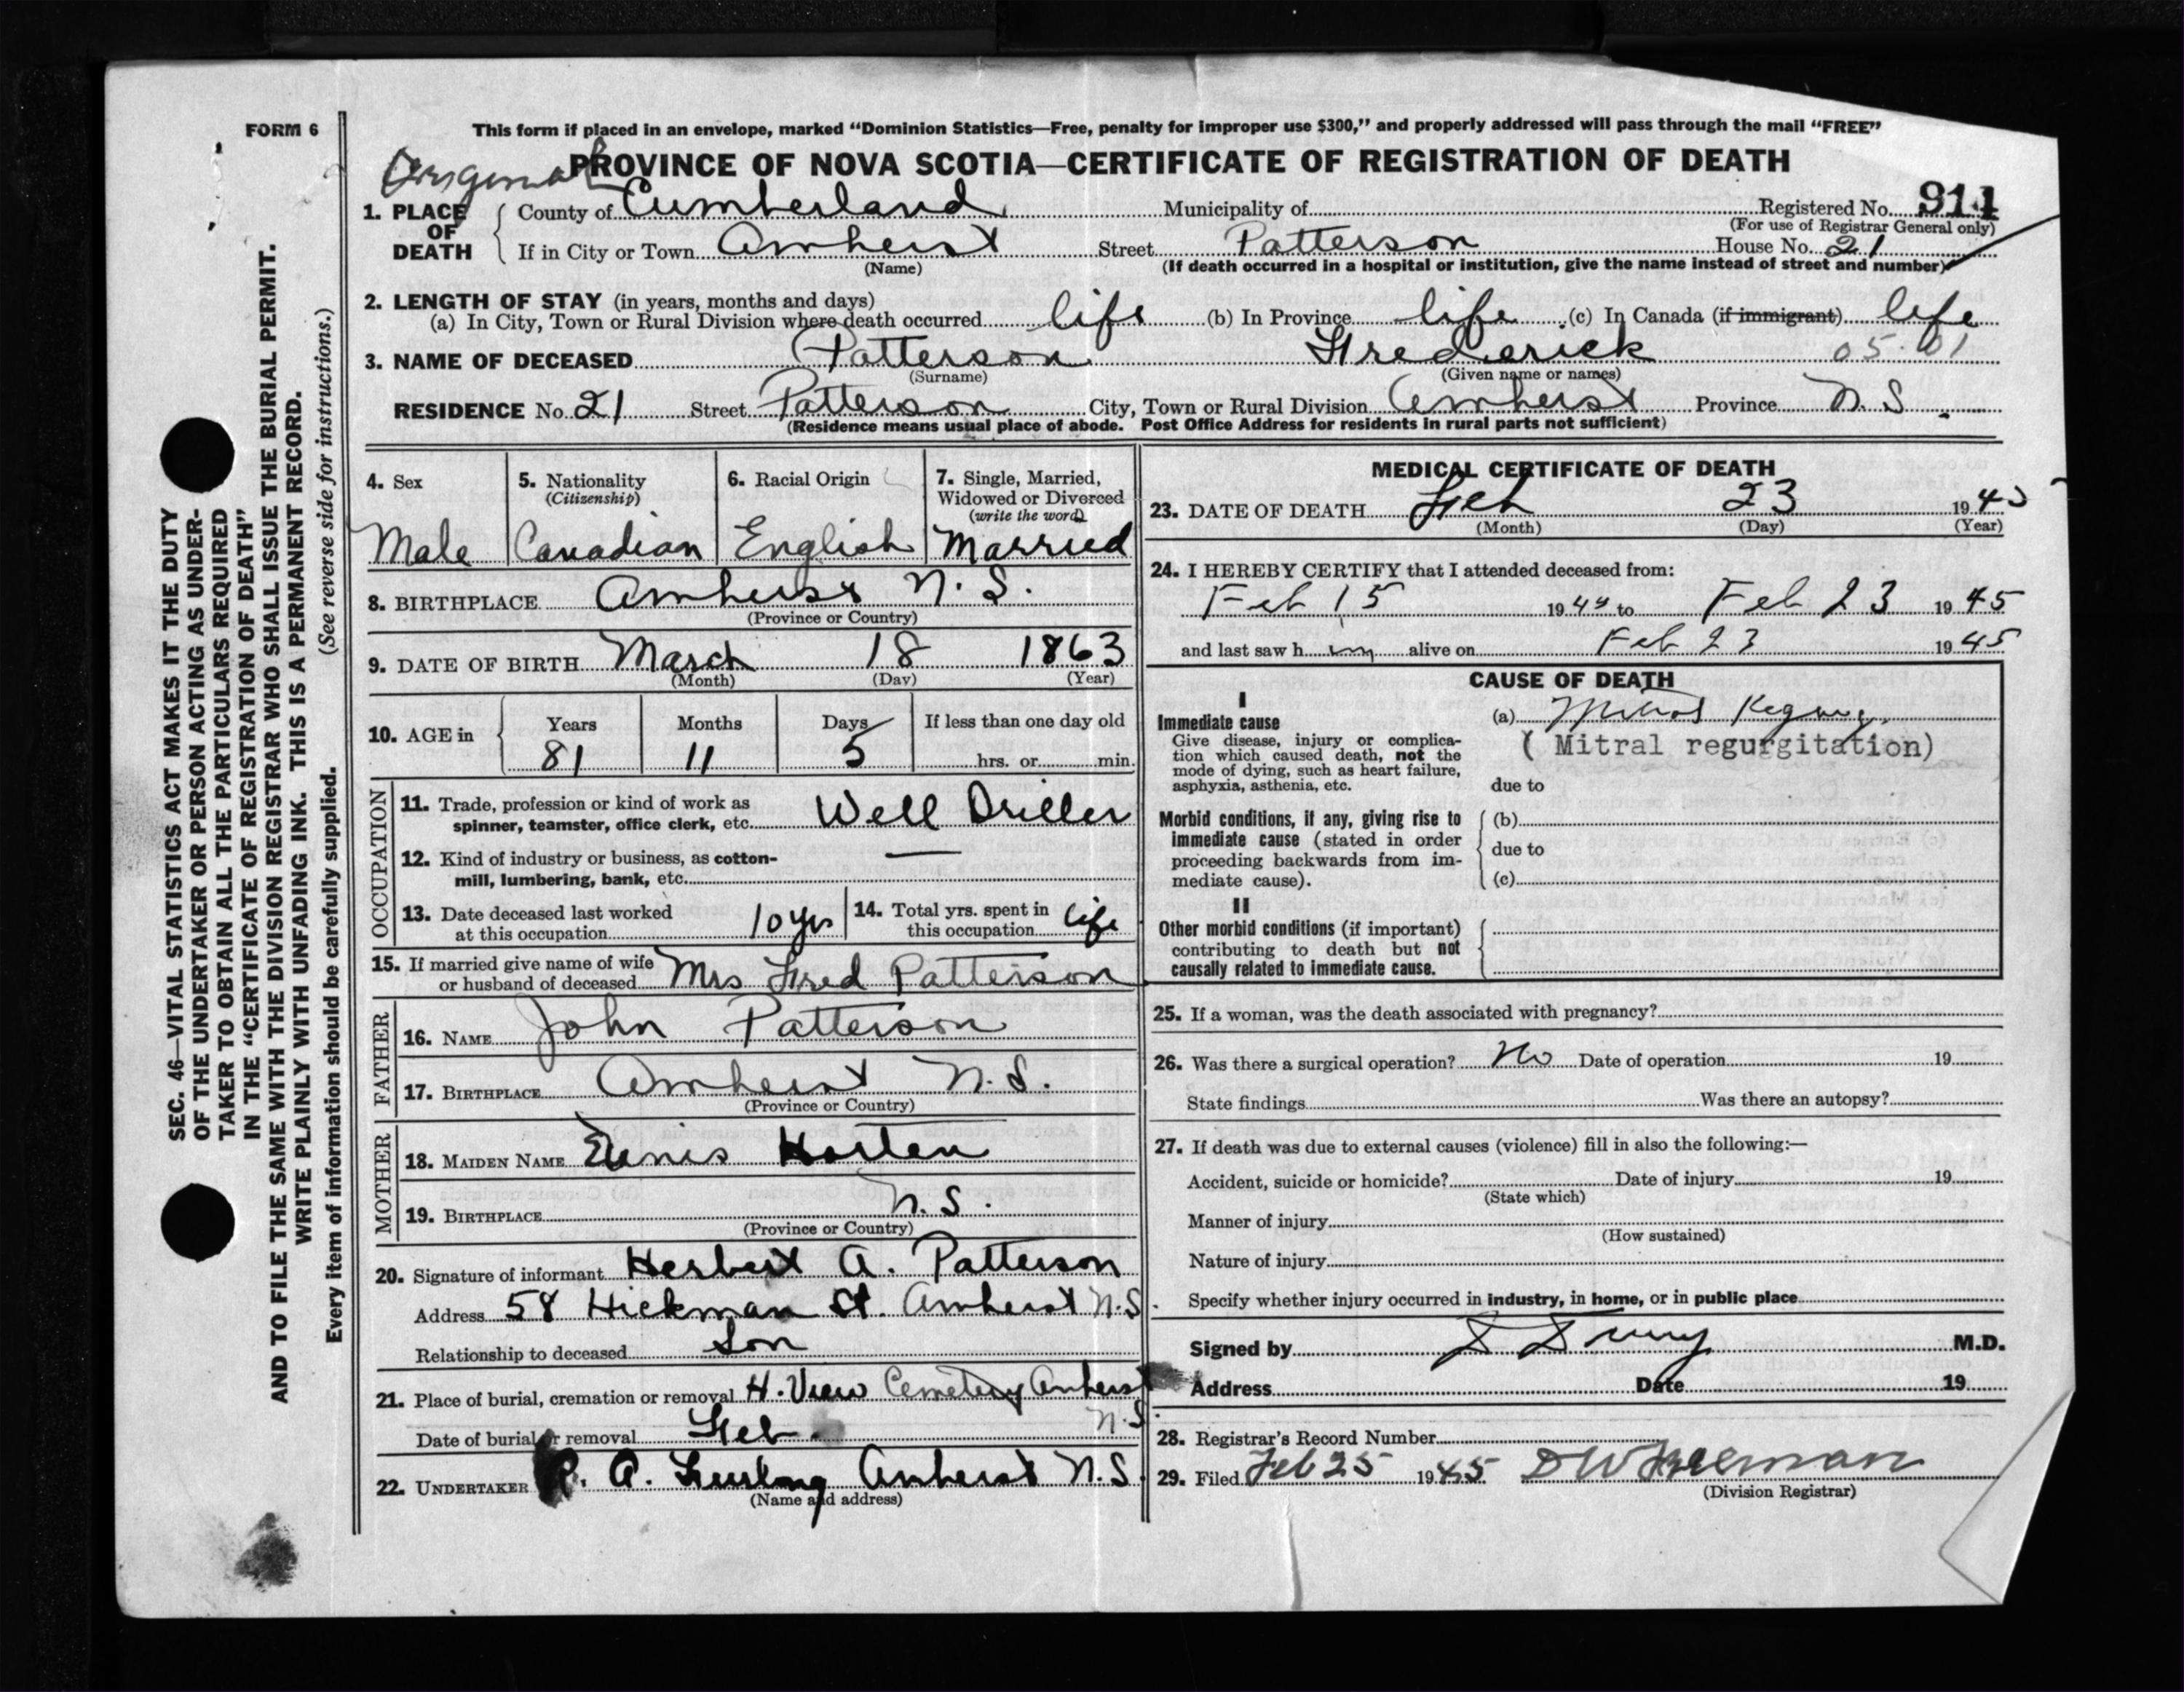 FORM 6
This form if placed in an envelope, marked "Dominion Statistics—Free, penalty for improper use $300," and properly addressed will pass through the mail "FREE"
Original
PROVINCE OF NOVA SCOTIA—CERTIFICATE OF REGISTRATION OF DEATH
1. PLACE OF DEATH County of Cumberland Municipality of Registered No. 914
(For use of Registrar General only)
If in City or Town Amherst Street Patterson House No. 21
(Name) (If death occurred in a hospital or institution, give the name instead of street and number)
2. LENGTH OF STAY (in years, months and days)
(a) In City, Town or Rural Division where death occurred life (b) In Province life (c) In Canada (if immigrant) life
3. NAME OF DECEASED Patterson Frederick 05.01
(Surname) (Given name or names)
RESIDENCE No. 21 Street Patterson City, Town or Rural Division Amherst Province N.S.
(Residence means usual place of abode. Post Office Address for residents in rural parts not sufficient)
4. Sex 5. Nationality 6. Racial Origin 7. Single, Married,
(Citizenship) Widowed or Divorced
(write the word)
Male Canadian English Married
8. BIRTHPLACE Amherst N.S.
(Province or Country)
9. DATE OF BIRTH March 18 1863
(Month) (Day) (Year)
10. AGE in Years Months Days If less than one day old
81 11 5 hrs. or min.
OCCUPATION
11. Trade, profession or kind of work as
spinner, teamster, office clerk, etc. Well Driller
12. Kind of industry or business, as cotton- —
mill, lumbering, bank, etc.
13. Date deceased last worked 14. Total yrs. spent in
at this occupation 10 yrs this occupation life
15. If married give name of wife
or husband of deceased Mrs Fred Patterson
FATHER
16. NAME John Patterson
17. BIRTHPLACE Amherst N.S.
(Province or Country)
MOTHER
18. MAIDEN NAME Horten
19. BIRTHPLACE N.S.
(Province or Country)
20. Signature of informant Herbert A. Patterson
Address 58 Hickman St. Amherst N.S.
Relationship to deceased Son
21. Place of burial, cremation or removal H. View Cemetery Amherst
N.S.
Date of burial or removal Feb.
22. UNDERTAKER A. Amherst N.S.
(Name and address)
MEDICAL CERTIFICATE OF DEATH
23. DATE OF DEATH Feb 23 1945
(Month) (Day) (Year)
24. I HEREBY CERTIFY that I attended deceased from:
Feb 15 1944 to Feb 23 1945
and last saw him alive on Feb 23 1945
CAUSE OF DEATH
I
Immediate cause (a) Mitral Regurg.
( Mitral regurgitation)
Give disease, injury or complica-
tion which caused death, not the
mode of dying, such as heart failure,
asphyxia, asthenia, etc. due to
Morbid conditions, if any, giving rise to (b)
immediate cause (stated in order
proceeding backwards from im- due to
mediate cause). (c)
II
Other morbid conditions (if important)
contributing to death but not
causally related to immediate cause.
25. If a woman, was the death associated with pregnancy?
26. Was there a surgical operation? No Date of operation 19
State findings Was there an autopsy?
27. If death was due to external causes (violence) fill in also the following:—
Accident, suicide or homicide? Date of injury 19
(State which)
Manner of injury
(How sustained)
Nature of injury
Specify whether injury occurred in industry, in home, or in public place
Signed by M.D.
Address Date 19
28. Registrar's Record Number
29. Filed Feb 25 1945 D W Freeman
(Division Registrar)
SEC. 46—VITAL STATISTICS ACT MAKES IT THE DUTY
OF THE UNDERTAKER OR PERSON ACTING AS UNDER-
TAKER TO OBTAIN ALL THE PARTICULARS REQUIRED
IN THE "CERTIFICATE OF REGISTRATION OF DEATH"
AND TO FILE THE SAME WITH THE DIVISION REGISTRAR WHO SHALL ISSUE THE BURIAL PERMIT.
WRITE PLAINLY WITH UNFADING INK. THIS IS A PERMANENT RECORD.
Every item of information should be carefully supplied. (See reverse side for instructions.)